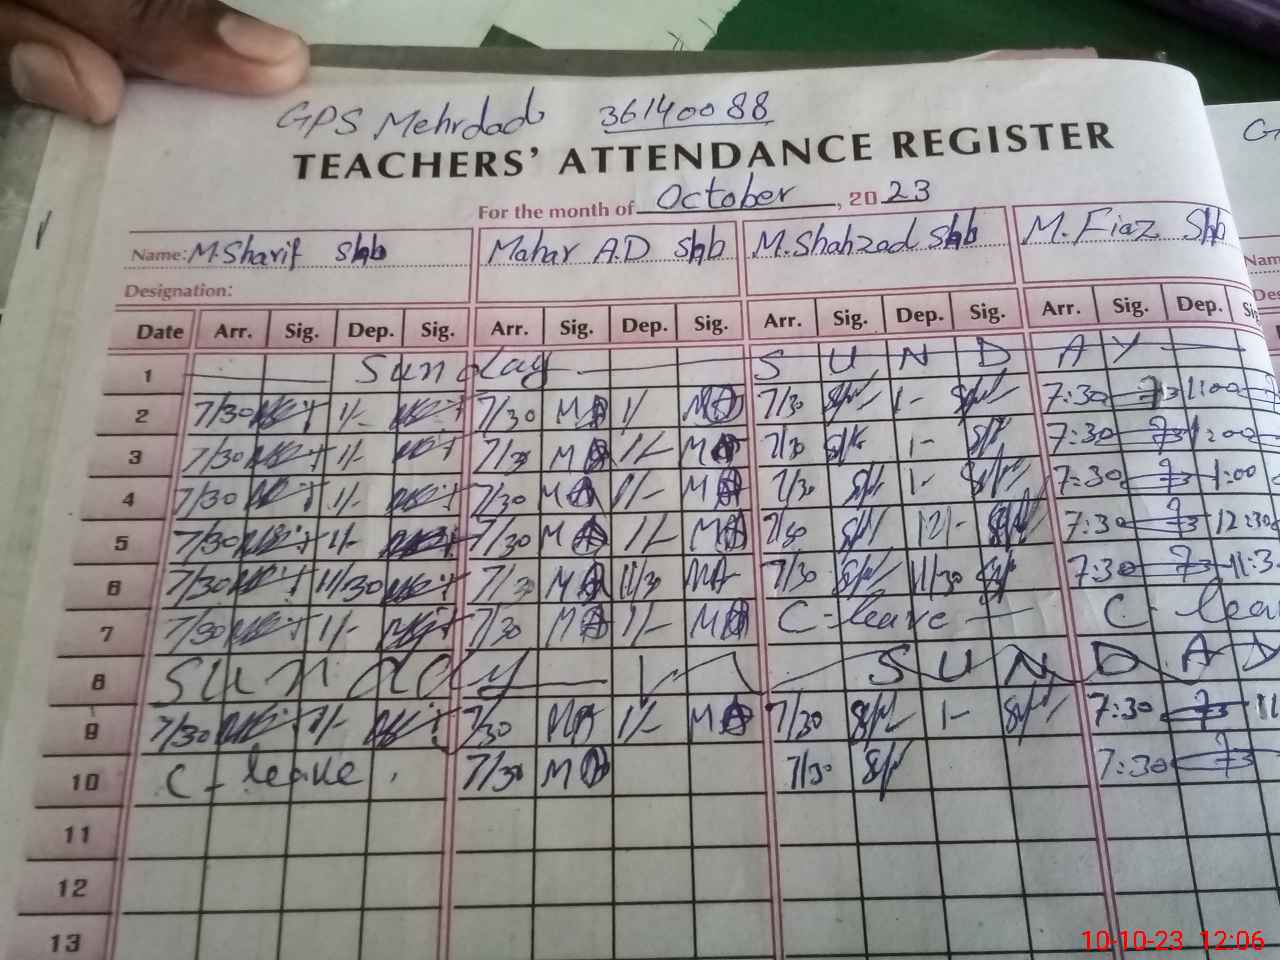 GPS Mehrdad 36140088
TEACHERS' ATTENDANCE REGISTER
For the month of October, 2023
Name: M.Sharif Shb Mahar A.D Shb M.Shahzad Shb M. Fiaz Shb
Designation:
Date Arr. Sig. Dep. Sig. Arr. Sig. Dep. Sig. Arr. Sig. Dep. Sig. Arr. Sig. Dep.
1 Sunday SUNDAY
2 7/30 1/- 7/30 MA 1/ MA 7/30 1- 7:30 1:00
3 7/30 1/- 7/30 MA 1/- MA 7/30 1- 7:30 1:00
4 7/30 1/- 7/30 MA 1/- MA 7/30 1- 7:30 1:00
5 7/30 1/- 7/30 MA 1/- MA 7/30 12/- 7:30 12:30
6 7/30 11/30 7/30 MA 11/30 MA 7/30 11/30 7:30 11:3
7 7/30 1/- 7/30 MA 1/- MA C-leave C-lea
8 Sunday SUNDAY
9 7/30 1/- 7/30 MA 1/- MA 7/30 1- 7:30
10 C-leave. 7/30 MA 7/30 7:30
11
12
13
10-10-23 12:06